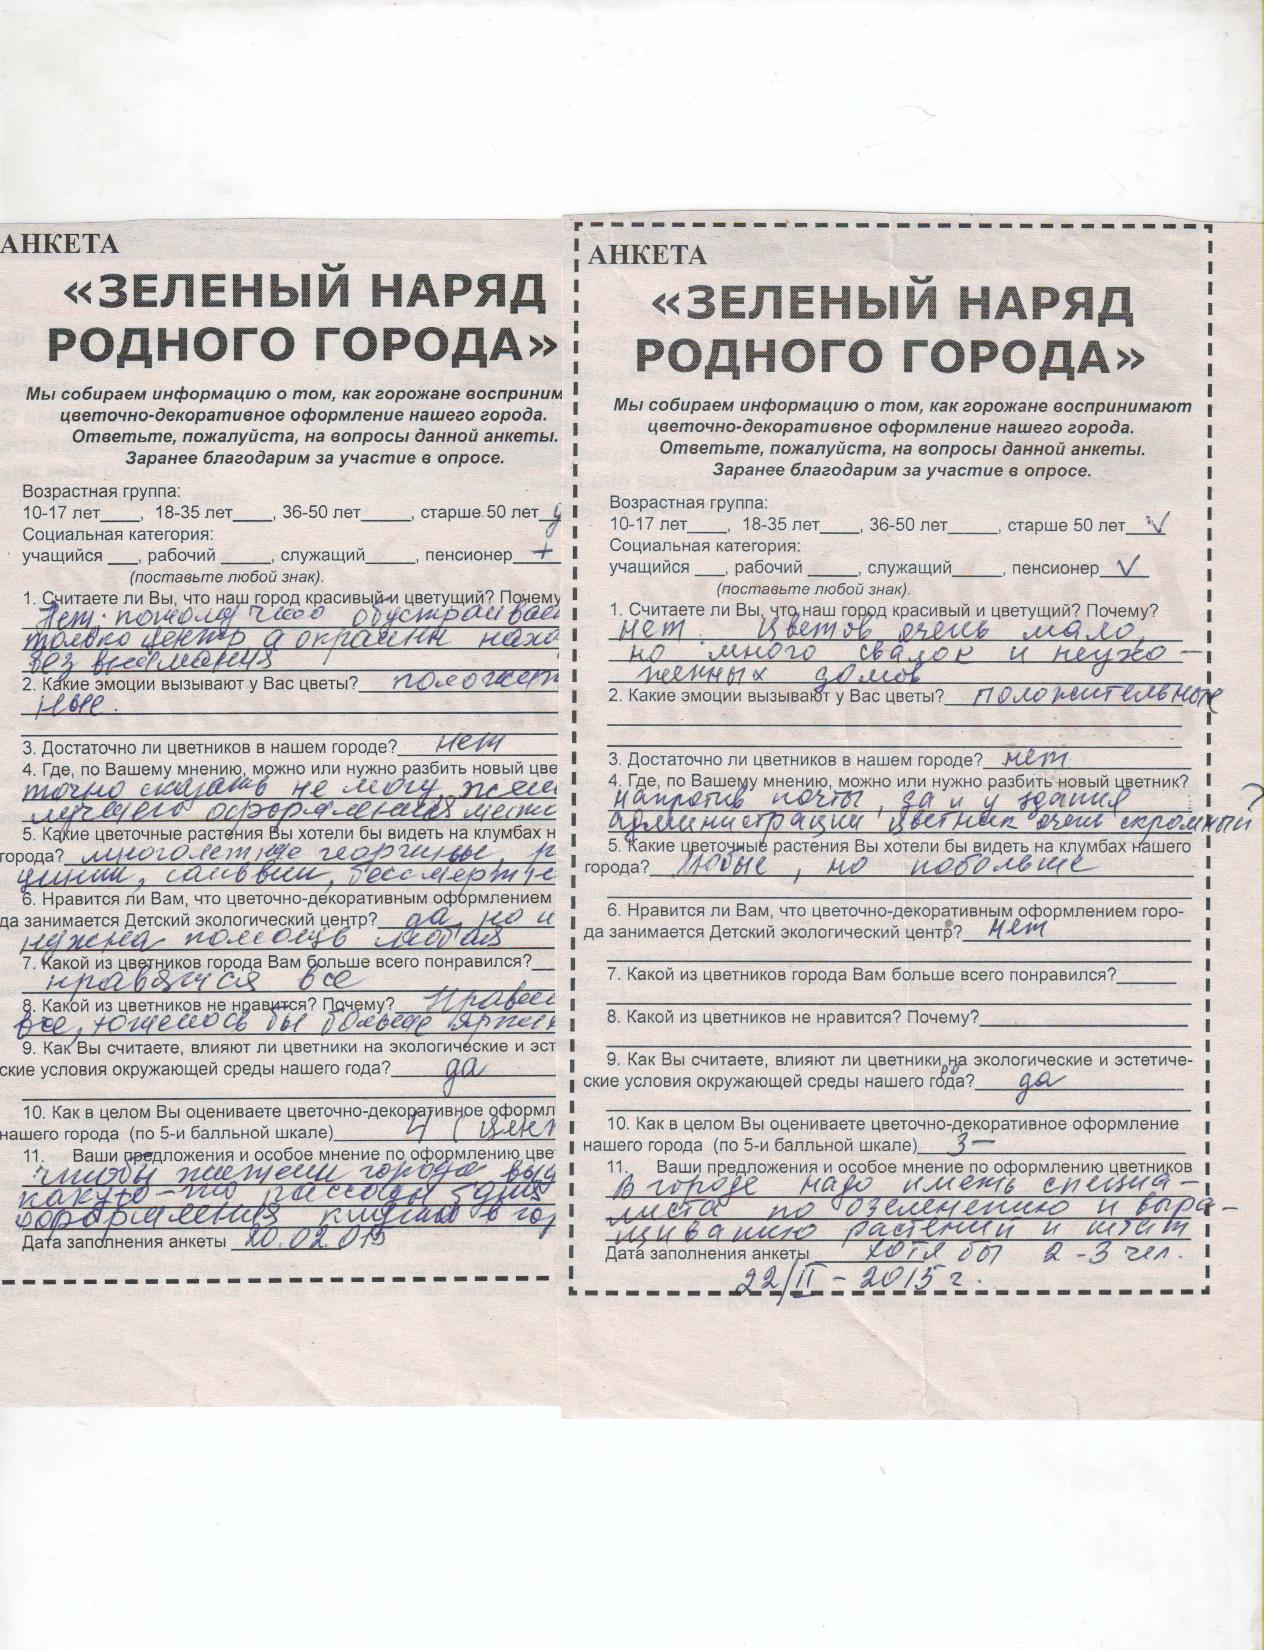 АНКЕТА
«ЗЕЛЕНЫЙ НАРЯД
РОДНОГО ГОРОДА»
Мы собираем информацию о том, как горожане восприним
цветочно-декоративное оформление нашего города.
Ответьте, пожалуйста, на вопросы данной анкеты.
Заранее благодарим за участие в опросе.
Возрастная группа:
10-17 лет____, 18-35 лет____, 36-50 лет_____, старше 50 лет
Социальная категория:
учащийся ___, рабочий _____, служащий_____, пенсионер +
(поставьте любой знак).
1. Считаете ли Вы, что наш город красивый и цветущий? Почему
Нет. потому что обустраивает
только центр а окраины нахо
без внимания
2. Какие эмоции вызывают у Вас цветы? положит
ные.
3. Достаточно ли цветников в нашем городе? нет
4. Где, по Вашему мнению, можно или нужно разбить новый цве
точно сказать не могу,
лучшего оформления
5. Какие цветочные растения Вы хотели бы видеть на клумбах н
города? многолетние георгины, р
цинии, сальвии, бессмертн
6. Нравится ли Вам, что цветочно-декоративным оформлением
да занимается Детский экологический центр? да, но и
нужна помощь любая
7. Какой из цветников города Вам больше всего понравился?
нравятся все
8. Какой из цветников не нравится? Почему? Нрави
все, хотелось бы больше
9. Как Вы считаете, влияют ли цветники на экологические и эст
ские условия окружающей среды нашего года? да
10. Как в целом Вы оцениваете цветочно-декоративное оформл
нашего города (по 5-и балльной шкале) 4 (цент
11. Ваши предложения и особое мнение по оформлению цве
чтобы жители города выд
какую-то рассаду для
оформления клумб в гор
Дата заполнения анкеты 20.02.015
АНКЕТА
«ЗЕЛЕНЫЙ НАРЯД
РОДНОГО ГОРОДА»
Мы собираем информацию о том, как горожане воспринимают
цветочно-декоративное оформление нашего города.
Ответьте, пожалуйста, на вопросы данной анкеты.
Заранее благодарим за участие в опросе.
Возрастная группа:
10-17 лет____, 18-35 лет____, 36-50 лет_____, старше 50 лет V
Социальная категория:
учащийся ___, рабочий _____, служащий_____, пенсионер V
(поставьте любой знак).
1. Считаете ли Вы, что наш город красивый и цветущий? Почему?
нет. Цветов очень мало,
но много свалок и неухо-
женных домов
2. Какие эмоции вызывают у Вас цветы? положительные
3. Достаточно ли цветников в нашем городе? нет
4. Где, по Вашему мнению, можно или нужно разбить новый цветник?
напротив почты, да и у здания ?
администрации цветник очень скромный
5. Какие цветочные растения Вы хотели бы видеть на клумбах нашего
города? Любые, но побольше
6. Нравится ли Вам, что цветочно-декоративным оформлением горо-
да занимается Детский экологический центр? нет
7. Какой из цветников города Вам больше всего понравился?
8. Какой из цветников не нравится? Почему?
9. Как Вы считаете, влияют ли цветники на экологические и эстетиче-
ские условия окружающей среды нашего города? да
10. Как в целом Вы оцениваете цветочно-декоративное оформление
нашего города (по 5-и балльной шкале) 3-
11. Ваши предложения и особое мнение по оформлению цветников
В городе надо иметь специа-
листа по озеленению и выра-
щиванию растений и штат
Дата заполнения анкеты хотя бы 2-3 чел.
22/II - 2015 г.